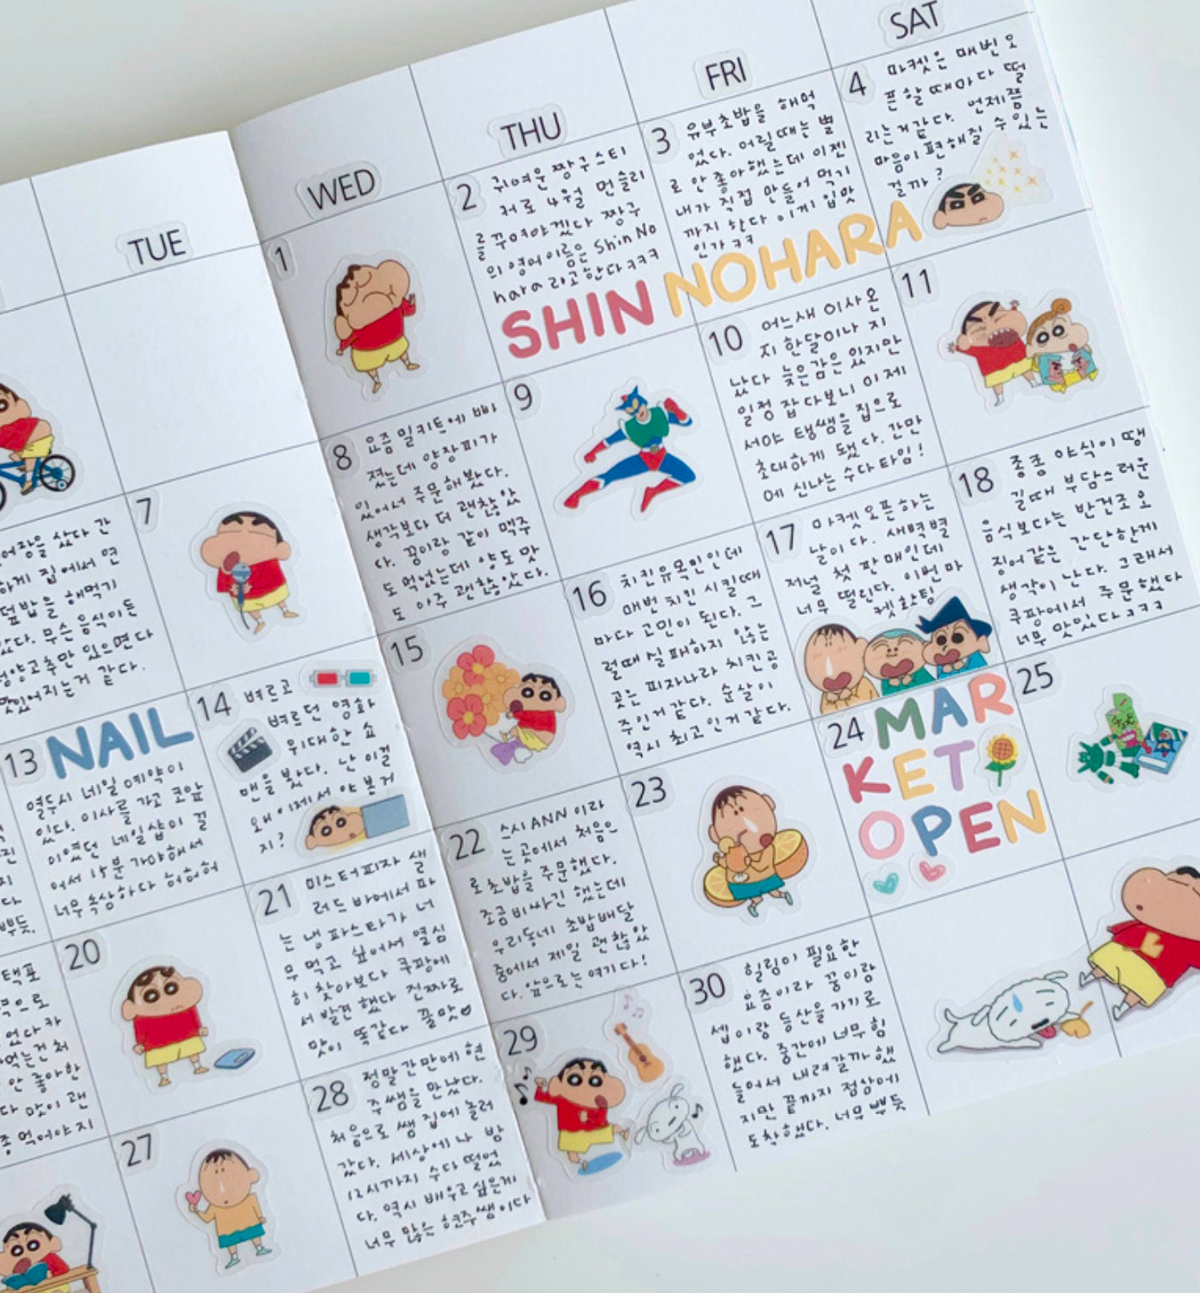 TUE
WED
THU
FRI
SAT
1
2
귀여운 짱구스티
커로 4월 먼슬리
를꾸며야겠다 짱구
의 영어이름은 Shin No
hara 라고한다ㅋㅋㅋ
3
유부초밥을 해먹
었다. 어릴때는 별
로 안좋아했는데 이젠
내가 직접 만들어 먹기
까지 한다 이게 입맛
인가ㅋㅋ
4
마켓은 매번 오
픈할때마다 떨
리는거같다. 언제쯤
마음이 편해질 수있는
걸까?
SHIN NOHARA
어장을 샀다 간
하게 집에서 연
덮밥을 해먹기
았다. 무슨 음식이든
양고추만 있으면다
맛있어지는거 같다.
7
8
요즘 밀키트에 빠
졌는데 양장피가
있어서 주문해봤다.
생각보다 더 괜찮았
다. 꿍이랑 같이 맥주
도 먹었는데 양도 맛
도 아주 괜찮았다.
9
10
어느새 이사온
지 한달이나 지
났다 늦은감은 있지만
일정 잡다보니 이제
서야 탱쌤을 집으로
초대하게 됐다. 간만
에 신나는 수다타임!
11
13
NAIL
열두시 네일예약이
있다. 이사를 가고 코앞
이였던 네일샵이 걸
어서 15분 가야해서
너무속상하다 허허허
14
벼르고
벼르던 영화
위대한 쇼
맨을 봤다. 난 이걸
왜 이제서야 본거
지?
15
16
치킨유목민인데
매번 치킨 시킬때
마다 고민이 된다. 그
럴때 실패하지 않는
곳는 피자나라 치킨공
주인거같다. 순살이
역시 최고인거같다.
17
마켓오픈하는
날이다. 새벽별
저널 첫 판매인데
너무 떨린다. 이번 마
켓화팅
18
종종 야식이 땡
길때 부담스러운
음식보다는 반건조오
징어같은 간단한게
생각이 난다. 그래서
쿠팡에서 주문했다
너무 맛있다ㅋㅋㅋ
택포
으로
었다카
먹는건처
안 좋아한
다 맛이 괜
종 먹어야지
20
21
미스터피자 샐
러드바에서 파
는 냉파스타가 너
무먹고 싶어서 열심
히 찾아보다 쿠팡에
서 발견했다 진짜로
맛이 똑같다 꿀맛♡
22
스시ANN 이라
는 곳에서 처음으
로초밥을 주문했다.
조금 비싸긴 했는데
우리동네 초밥배달
중에서 제일 괜찮았
다. 앞으로는 여기다!
23
24
MAR
KET
OPEN
25
27
28
정말간만에 현
주쌤을 만났다.
처음으로 쌤 집에 놀러
갔다. 세상에나 밤
12시까지 수다 떨었
다. 역시 배우고 싶은게
너무 많은 현주쌤이다
29
30
힐링이 필요한
요즘이라 꿍이랑
쎕이랑 등산을 가기로
했다. 중간에 너무 힘
들어서 내려갈까했
지만 끝까지 정상에
도착했다. 너무 뿌듯